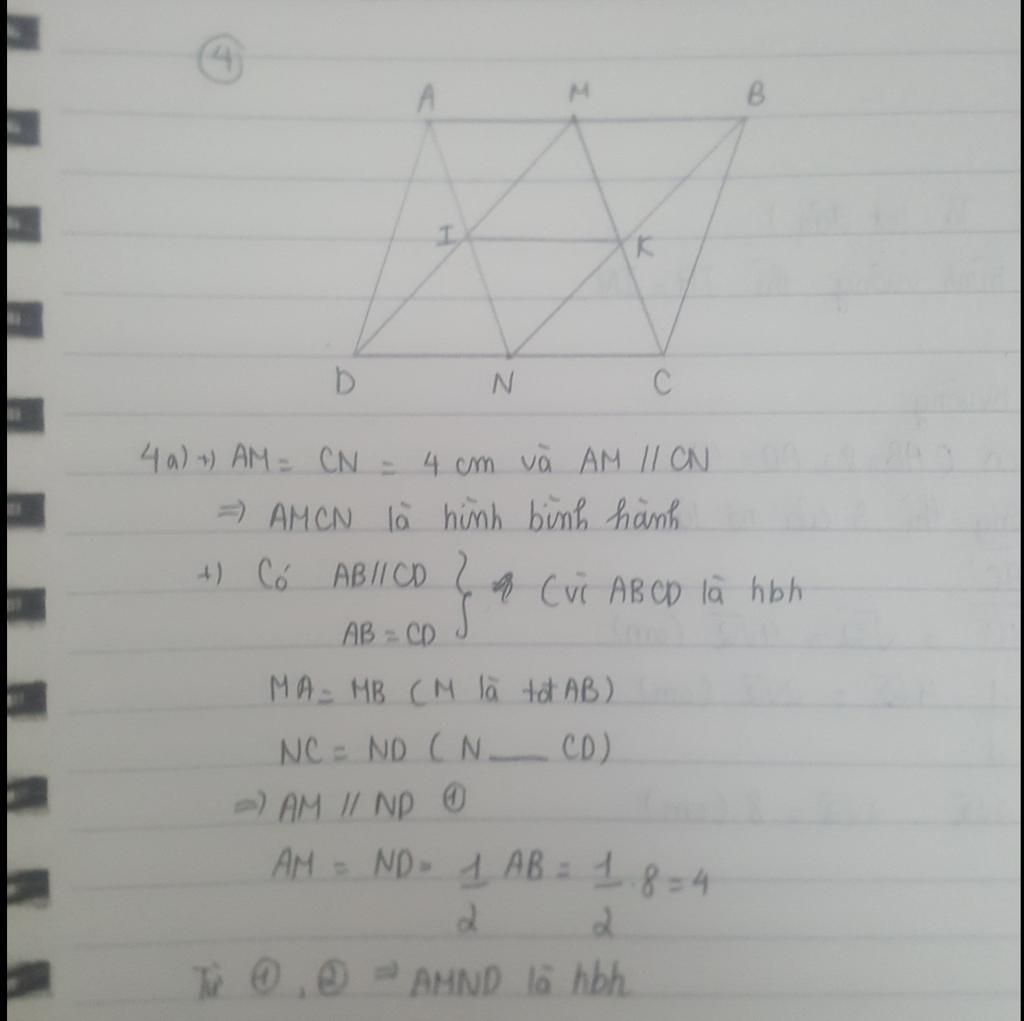 4
A M B
I K
D N C
4a) +) AM = CN = 4 cm và AM // CN
=> AMCN là hình bình hành
+) Có AB // CD } (vì ABCD là hbh
AB = CD
MA = MB (M là tđ AB)
NC = ND (N ___ CD)
=> AM // ND ①
AM = ND = 1/2 AB = 1/2 . 8 = 4
Từ ①, ② => AMND là hbh